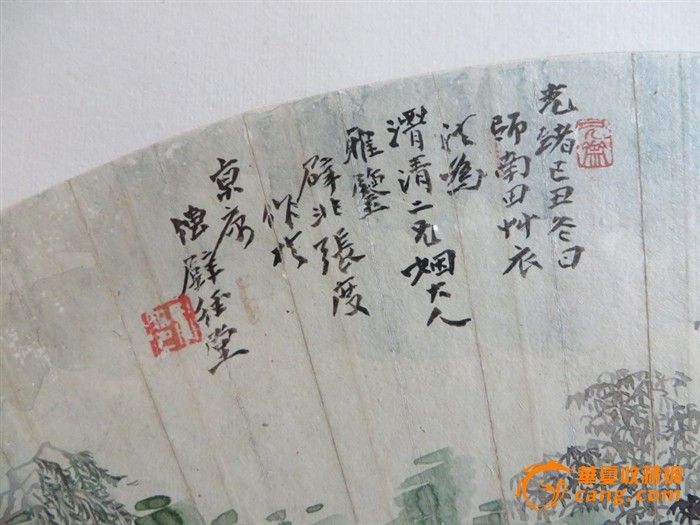 光緒己丑冬日
師南田艸衣
法為
清二兄姻大人
雅鑒
辟非張度
作於
京寓
堂
華夏收藏網
cang.com